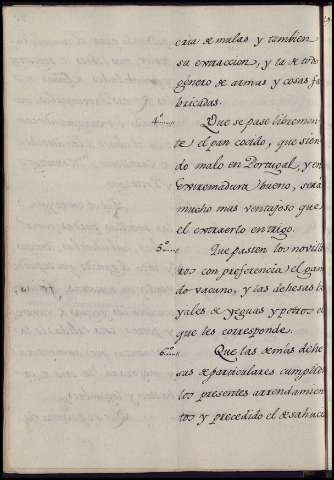 cria de mulas y tambien
su extraccion, y la de todo
género de armas y cosas fa
bricadas.
4º...... Que se pase libremen-
te el pan cocido, que sien
do malo en Portugal, y en
Extremadura bueno, sera
mucho mas ventajoso que
el extraerlo en trigo.
5º...... Que pasten los noville
ros con preferencia el gan
do vacuno, y las dehesas lo
yales de yeguas y potros el
que les corresponde.
6º...... Que las demás dehe
sas de particulares cumplido
los presentes arrendamien
tos y precedido el desahucio